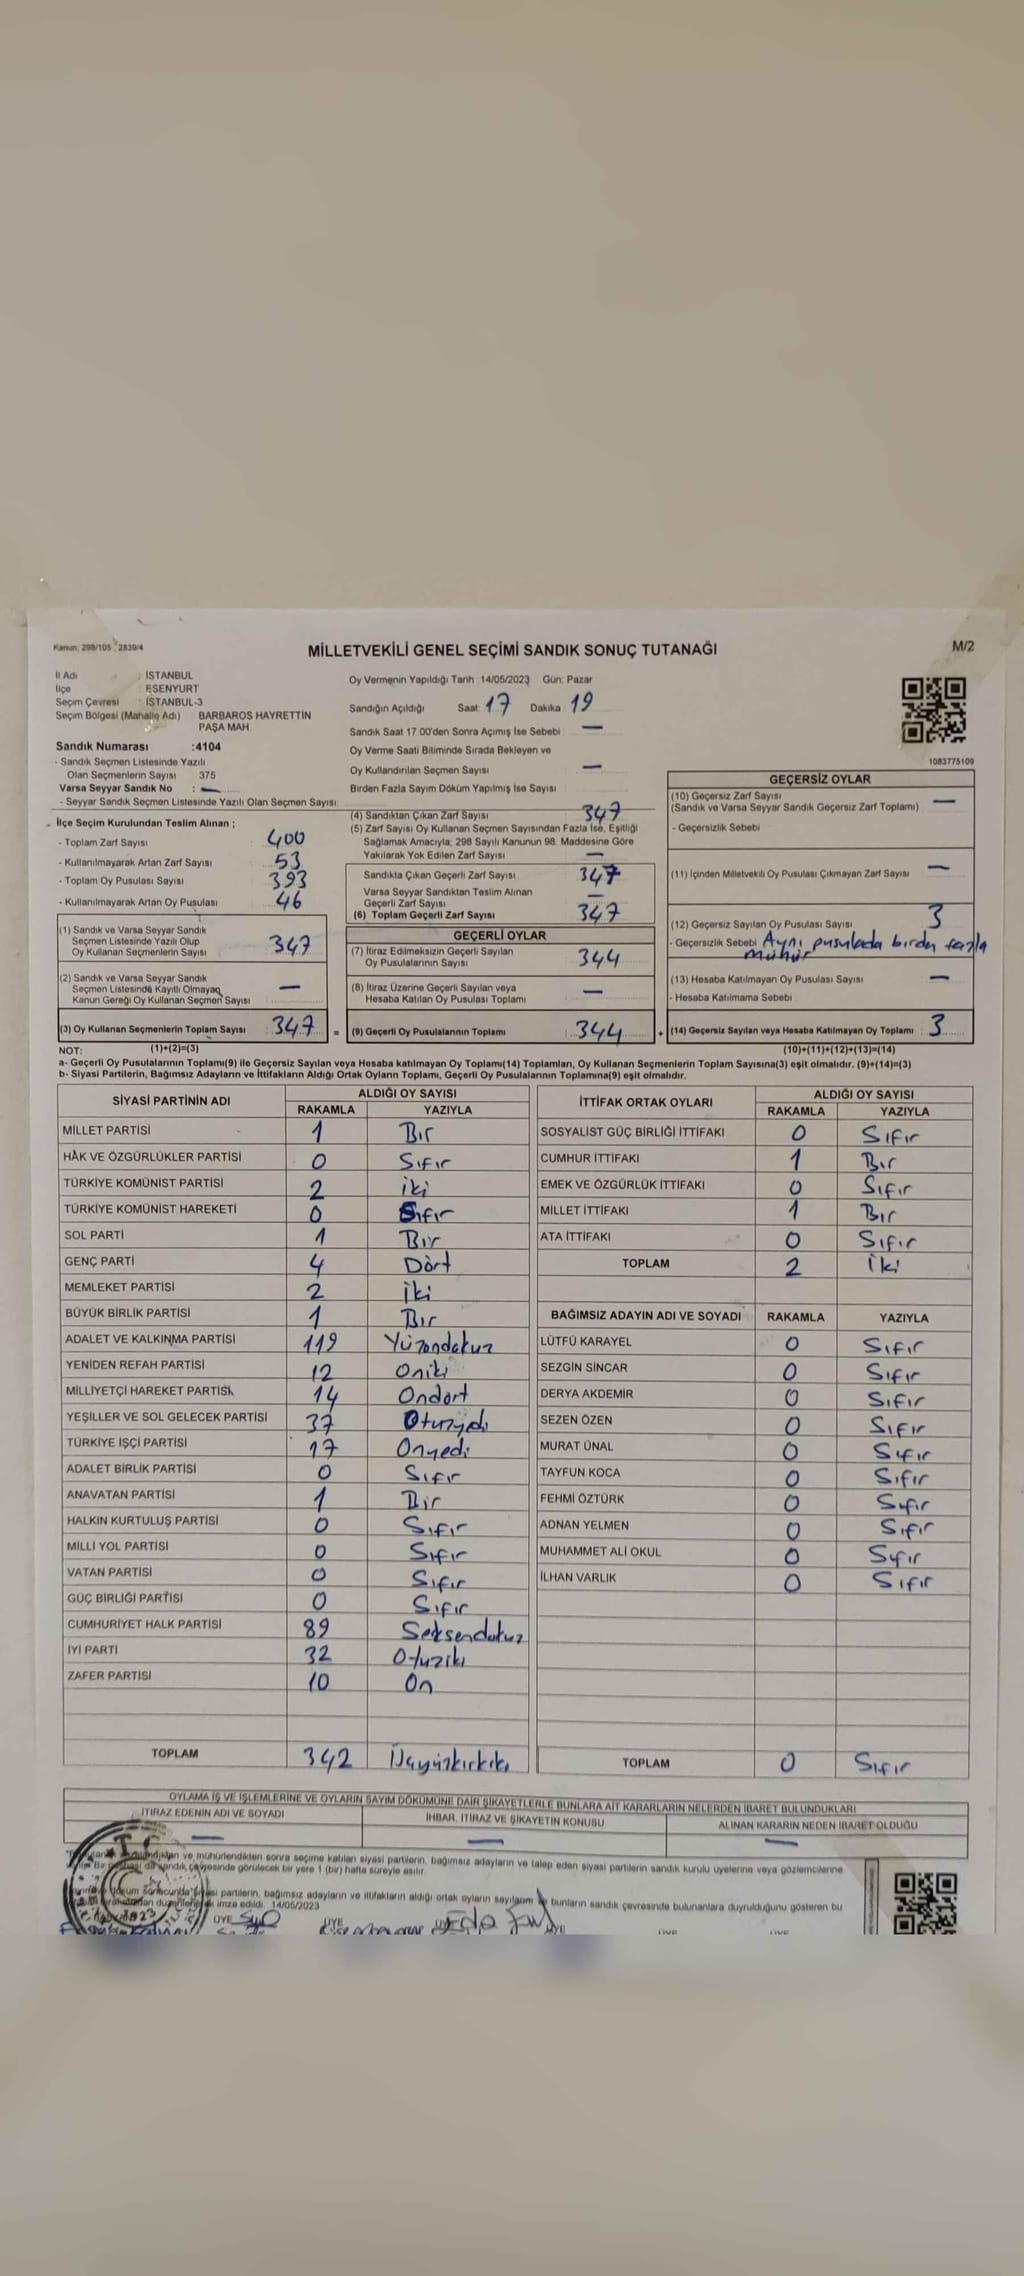 Kanun: 298/105, 2839/4
MİLLETVEKİLİ GENEL SEÇİMİ SANDIK SONUÇ TUTANAĞI
M/2
İl Adı : İSTANBUL
İlçe : ESENYURT
Seçim Çevresi : İSTANBUL-3
Seçim Bölgesi (Mahalle Adı) BARBAROS HAYRETTİN
PAŞA MAH.
Sandık Numarası :4104
- Sandık Seçmen Listesinde Yazılı
Olan Seçmenlerin Sayısı 375
Varsa Seyyar Sandık No : —
- Seyyar Sandık Seçmen Listesinde Yazılı Olan Seçmen Sayısı:
İlçe Seçim Kurulundan Teslim Alınan ;
- Toplam Zarf Sayısı : 400
- Kullanılmayarak Artan Zarf Sayısı : 53
- Toplam Oy Pusulası Sayısı : 393
- Kullanılmayarak Artan Oy Pusulası : 46
(1) Sandık ve Varsa Seyyar Sandık
Seçmen Listesinde Yazılı Olup
Oy Kullanan Seçmenlerin Sayısı : 347
(2) Sandık ve Varsa Seyyar Sandık
Seçmen Listesinde Kayıtlı Olmayan
Kanun Gereği Oy Kullanan Seçmen Sayısı : —
(3) Oy Kullanan Seçmenlerin Toplam Sayısı : 347
(1)+(2)=(3)
Oy Vermenin Yapıldığı Tarih :14/05/2023 Gün: Pazar
Sandığın Açıldığı Saat: 17 Dakika 19
Sandık Saat 17:00'den Sonra Açılmış İse Sebebi : —
Oy Verme Saati Bitiminde Sırada Bekleyen ve
Oy Kullandırılan Seçmen Sayısı : —
Birden Fazla Sayım Döküm Yapılmış İse Sayısı :
(4) Sandıktan Çıkan Zarf Sayısı : 347
(5) Zarf Sayısı Oy Kullanan Seçmen Sayısından Fazla İse, Eşitliği
Sağlamak Amacıyla, 298 Sayılı Kanunun 98. Maddesine Göre
Yakılarak Yok Edilen Zarf Sayısı : —
Sandıkta Çıkan Geçerli Zarf Sayısı : 347
Varsa Seyyar Sandıktan Teslim Alınan
Geçerli Zarf Sayısı : —
(6) Toplam Geçerli Zarf Sayısı : 347
GEÇERLİ OYLAR
(7) İtiraz Edilmeksizin Geçerli Sayılan
Oy Pusulalarının Sayısı : 344
(8) İtiraz Üzerine Geçerli Sayılan veya
Hesaba Katılan Oy Pusulası Toplamı : —
= (9) Geçerli Oy Pusulalarının Toplamı : 344
1083775109
GEÇERSİZ OYLAR
(10) Geçersiz Zarf Sayısı
(Sandık ve Varsa Seyyar Sandık Geçersiz Zarf Toplamı) : —
- Geçersizlik Sebebi
(11) İçinden Milletvekili Oy Pusulası Çıkmayan Zarf Sayısı : —
(12) Geçersiz Sayılan Oy Pusulası Sayısı : 3
- Geçersizlik Sebebi Aynı pusulada birden fazla
mühür
(13) Hesaba Katılmayan Oy Pusulası Sayısı : —
- Hesaba Katılmama Sebebi
+ (14) Geçersiz Sayılan veya Hesaba Katılmayan Oy Toplamı : 3
(10)+(11)+(12)+(13)=(14)
NOT:
a- Geçerli Oy Pusulalarının Toplamı(9) ile Geçersiz Sayılan veya Hesaba katılmayan Oy Toplamı(14) Toplamları, Oy Kullanan Seçmenlerin Toplam Sayısına(3) eşit olmalıdır. (9)+(14)=(3)
b- Siyasi Partilerin, Bağımsız Adayların ve İttifakların Aldığı Ortak Oyların Toplamı, Geçerli Oy Pusulalarının Toplamına(9) eşit olmalıdır.
SİYASİ PARTİNİN ADI ALDIĞI OY SAYISI
RAKAMLA YAZIYLA
MİLLET PARTİSİ 1 Bir
HAK VE ÖZGÜRLÜKLER PARTİSİ 0 Sıfır
TÜRKİYE KOMÜNİST PARTİSİ 2 iki
TÜRKİYE KOMÜNİST HAREKETİ 0 Sıfır
SOL PARTİ 1 Bir
GENÇ PARTİ 4 Dört
MEMLEKET PARTİSİ 2 İki
BÜYÜK BİRLİK PARTİSİ 1 Bir
ADALET VE KALKINMA PARTİSİ 119 Yüzondokuz
YENİDEN REFAH PARTİSİ 12 Oniki
MİLLİYETÇİ HAREKET PARTİSİ 14 Ondört
YEŞİLLER VE SOL GELECEK PARTİSİ 37 Otuzyedi
TÜRKİYE İŞÇİ PARTİSİ 17 Onyedi
ADALET BİRLİK PARTİSİ 0 Sıfır
ANAVATAN PARTİSİ 1 Bir
HALKIN KURTULUŞ PARTİSİ 0 Sıfır
MİLLİ YOL PARTİSİ 0 Sıfır
VATAN PARTİSİ 0 Sıfır
GÜÇ BİRLİĞİ PARTİSİ 0 Sıfır
CUMHURİYET HALK PARTİSİ 89 Seksendokuz
İYİ PARTİ 32 Otuziki
ZAFER PARTİSİ 10 On
TOPLAM 342 Üçyüzkırkiki
İTTİFAK ORTAK OYLARI ALDIĞI OY SAYISI
RAKAMLA YAZIYLA
SOSYALİST GÜÇ BİRLİĞİ İTTİFAKI 0 Sıfır
CUMHUR İTTİFAKI 1 Bir
EMEK VE ÖZGÜRLÜK İTTİFAKI 0 Sıfır
MİLLET İTTİFAKI 1 Bir
ATA İTTİFAKI 0 Sıfır
TOPLAM 2 İki
BAĞIMSIZ ADAYIN ADI VE SOYADI RAKAMLA YAZIYLA
LÜTFÜ KARAYEL 0 Sıfır
SEZGİN SİNCAR 0 Sıfır
DERYA AKDEMİR 0 Sıfır
SEZEN ÖZEN 0 Sıfır
MURAT ÜNAL 0 Sıfır
TAYFUN KOCA 0 Sıfır
FEHMİ ÖZTÜRK 0 Sıfır
ADNAN YELMEN 0 Sıfır
MUHAMMET ALİ OKUL 0 Sıfır
İLHAN VARLIK 0 Sıfır
TOPLAM 0 Sıfır
OYLAMA İŞ VE İŞLEMLERİNE VE OYLARIN SAYIM DÖKÜMÜNE DAİR ŞİKAYETLERLE BUNLARA AİT KARARLARIN NELERDEN İBARET BULUNDUKLARI
İTİRAZ EDENİN ADI VE SOYADI İHBAR, İTİRAZ VE ŞİKAYETİN KONUSU ALINAN KARARIN NEDEN İBARET OLDUĞU
— — —
ve mühürlendikten sonra seçime katılan siyasi partilerin, bağımsız adayların ve talep eden siyasi partilerin sandık kurulu üyelerine veya gözlemcilerine
sandık çevresinde görülecek bir yere 1 (bir) hafta süreyle asılır.
partilerin, bağımsız adayların ve ittifakların aldığı ortak oyların sayılarını ve bunların sandık çevresinde bulunanlara duyrulduğunu gösteren bu
imza edildi. 14/05/2023
T.C.
ÜYE ÜYE ÜYE ÜYE ÜYE
Eda